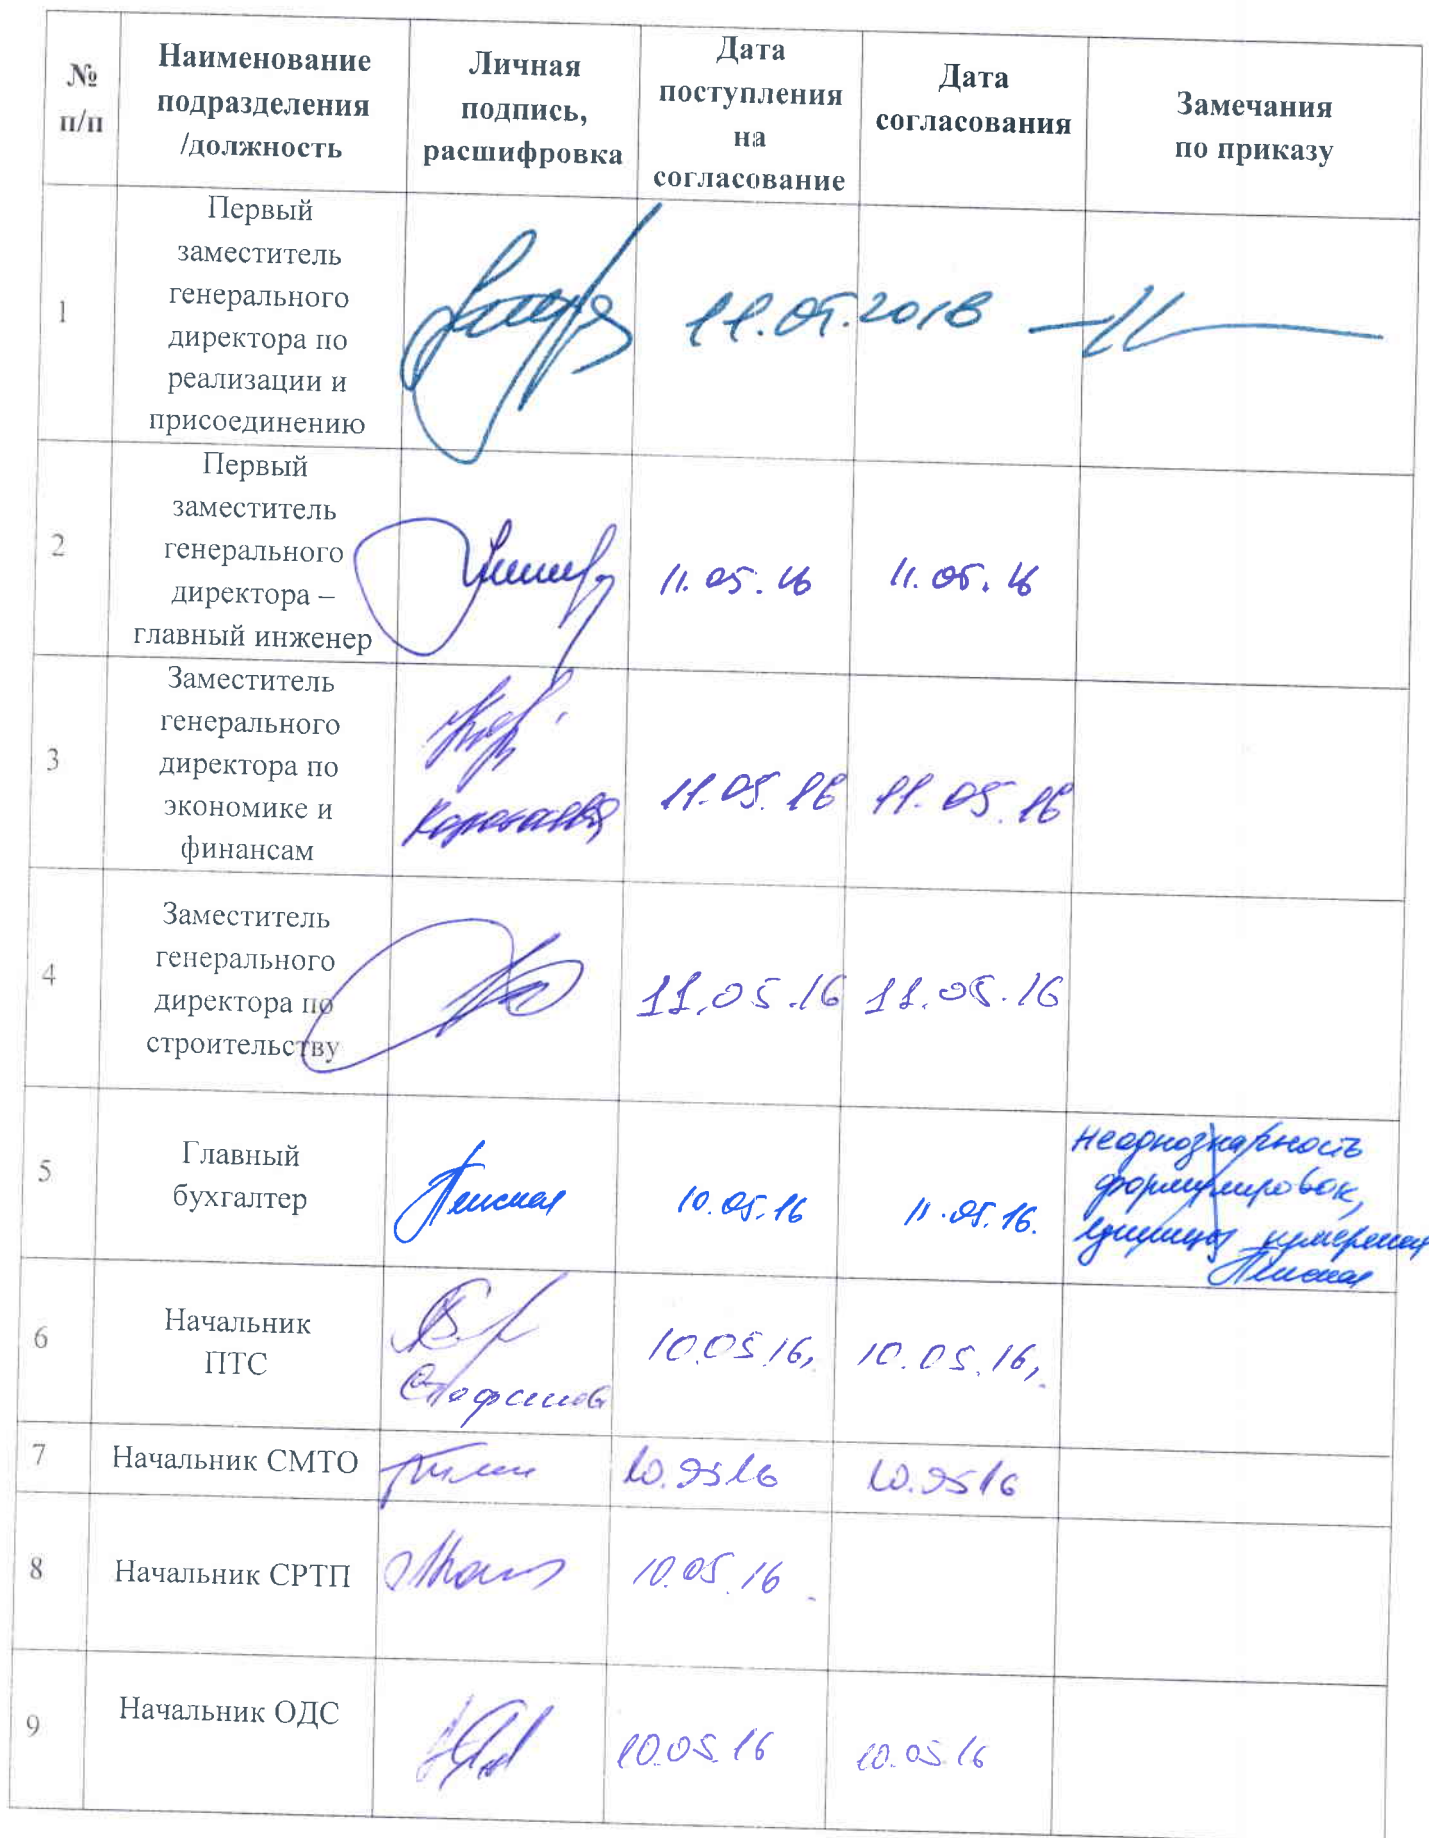 №
п/п
Наименование
подразделения
/должность
Личная
подпись,
расшифровка
Дата
поступления
на
согласование
Дата
согласования
Замечания
по приказу
1
Первый
заместитель
генерального
директора по
реализации и
присоединению
11.05.2016
2
Первый
заместитель
генерального
директора –
главный инженер
11.05.16
11.05.16
3
Заместитель
генерального
директора по
экономике и
финансам
11.05.16
11.05.16
4
Заместитель
генерального
директора по
строительству
11.05.16
11.05.16
5
Главный
бухгалтер
10.05.16
11.05.16.
Неоднозначность
формулировок,
единицы измерения
6
Начальник
ПТС
10.05.16,
10.05.16,
7
Начальник СМТО
10.0516
10.0516
8
Начальник СРТП
10.05.16
9
Начальник ОДС
10.05.16
10.05.16